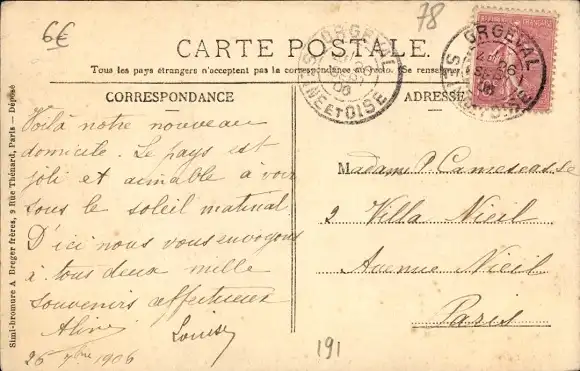 6€
78
CARTE POSTALE.
Tous les pays étrangers n'acceptent pas la correspondance au recto. (Se renseigner
CORRESPONDANCE
ADRESSE
Voilà notre nouveau
domicile. Le pays est
joli et aimable à voir
sous le soleil matinal
D'ici nous vous envoyons
à tous deux mille
souvenirs affectueux
Aline
Louise
26 7bre 1906
Madame P. Camescasse
2 Villa Niel
Avenue Niel
Paris
191
Simi-bromure A. Breger frères, 9 Rue Thénard, Paris — Déposé
ORGEVAL
06
SNE ET OISE
REPUBLIQUE FRANÇAISE
ORGEVAL
06
ET OISE